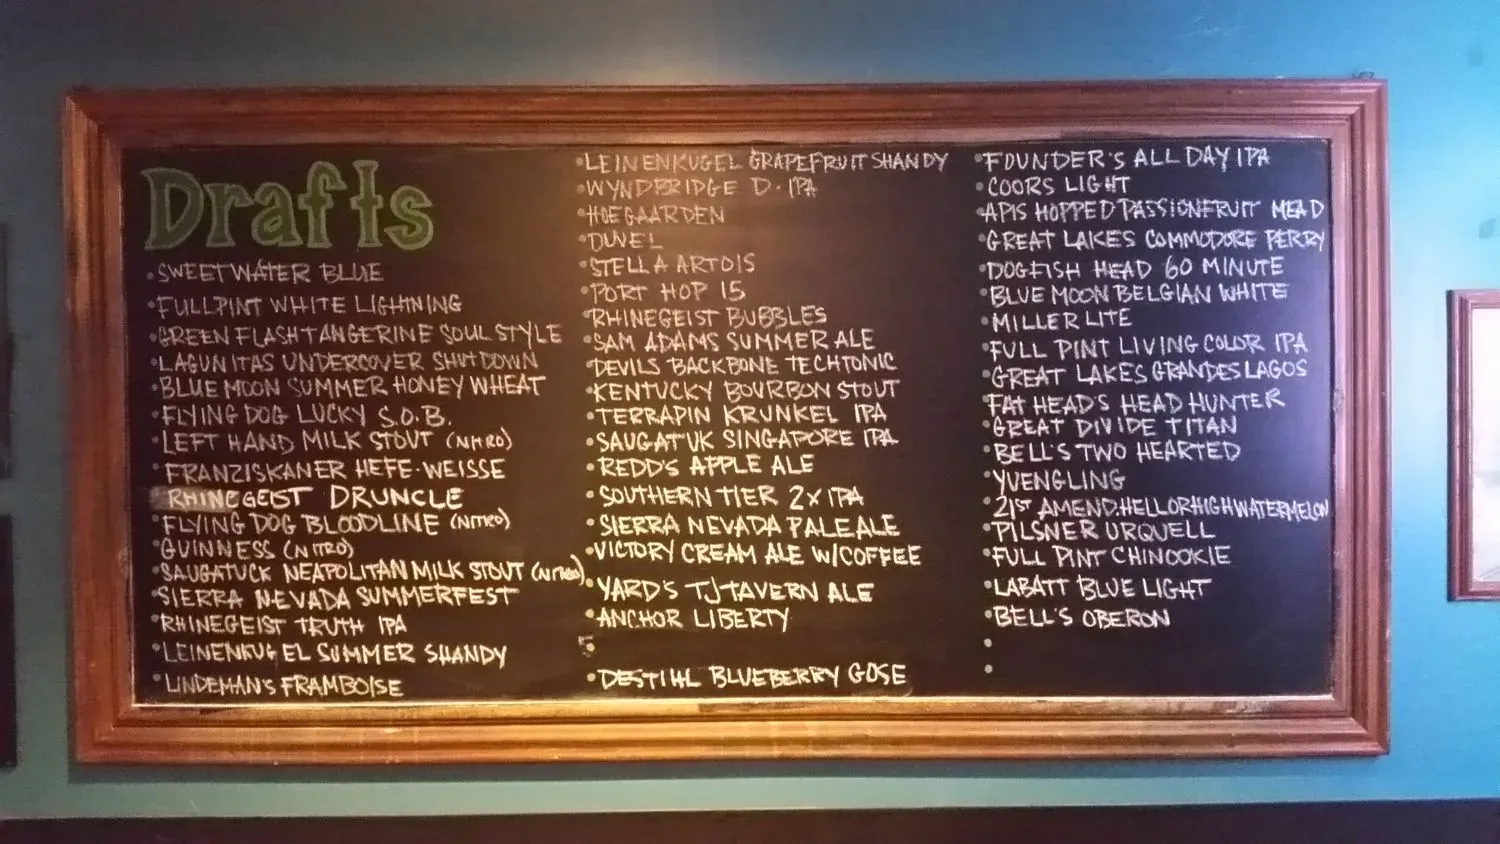 Drafts
• SWEETWATER BLUE
• FULLPINT WHITE LIGHTNING
• GREEN FLASH TANGERINE SOUL STYLE
• LAGUNITAS UNDERCOVER SHUTDOWN
• BLUE MOON SUMMER HONEY WHEAT
• FLYING DOG LUCKY S.O.B.
• LEFT HAND MILK STOUT (NITRO)
• FRANZISKANER HEFE-WEISSE
RHINEGEIST DRUNCLE
• FLYING DOG BLOODLINE (NITRO)
• GUINNESS (NITRO)
• SAUGATUCK NEAPOLITAN MILK STOUT (NITRO)
• SIERRA NEVADA SUMMERFEST
• RHINEGEIST TRUTH IPA
• LEINENKUGEL SUMMER SHANDY
• LINDEMAN'S FRAMBOISE
• LEINENKUGEL GRAPEFRUIT SHANDY
• WYNDBRIDGE D. IPA
• HOEGAARDEN
• DUVEL
• STELLA ARTOIS
• PORT HOP 15
• RHINEGEIST BUBBLES
• SAM ADAMS SUMMER ALE
• DEVILS BACKBONE TECHTONIC
• KENTUCKY BOURBON STOUT
• TERRAPIN KRUNKEL IPA
• SAUGATUK SINGAPORE IPA
• REDD'S APPLE ALE
• SOUTHERN TIER 2X IPA
• SIERRA NEVADA PALE ALE
• VICTORY CREAM ALE W/COFFEE
• YARD'S TJ TAVERN ALE
• ANCHOR LIBERTY
•
• DESTIHL BLUEBERRY GOSE
• FOUNDER'S ALL DAY IPA
• COORS LIGHT
• APIS HOPPED PASSIONFRUIT MEAD
• GREAT LAKES COMMODORE PERRY
• DOGFISH HEAD 60 MINUTE
• BLUE MOON BELGIAN WHITE
• MILLER LITE
• FULL PINT LIVING COLOR IPA
• GREAT LAKES GRANDES LAGOS
• FAT HEAD'S HEAD HUNTER
• GREAT DIVIDE TITAN
• BELL'S TWO HEARTED
• YVENGLING
• 21ST AMEND. HELLORHIGHWATERMELON
• PILSNER URQUELL
• FULL PINT CHINOOKIE
• LABATT BLUE LIGHT
• BELL'S OBERON
•
•